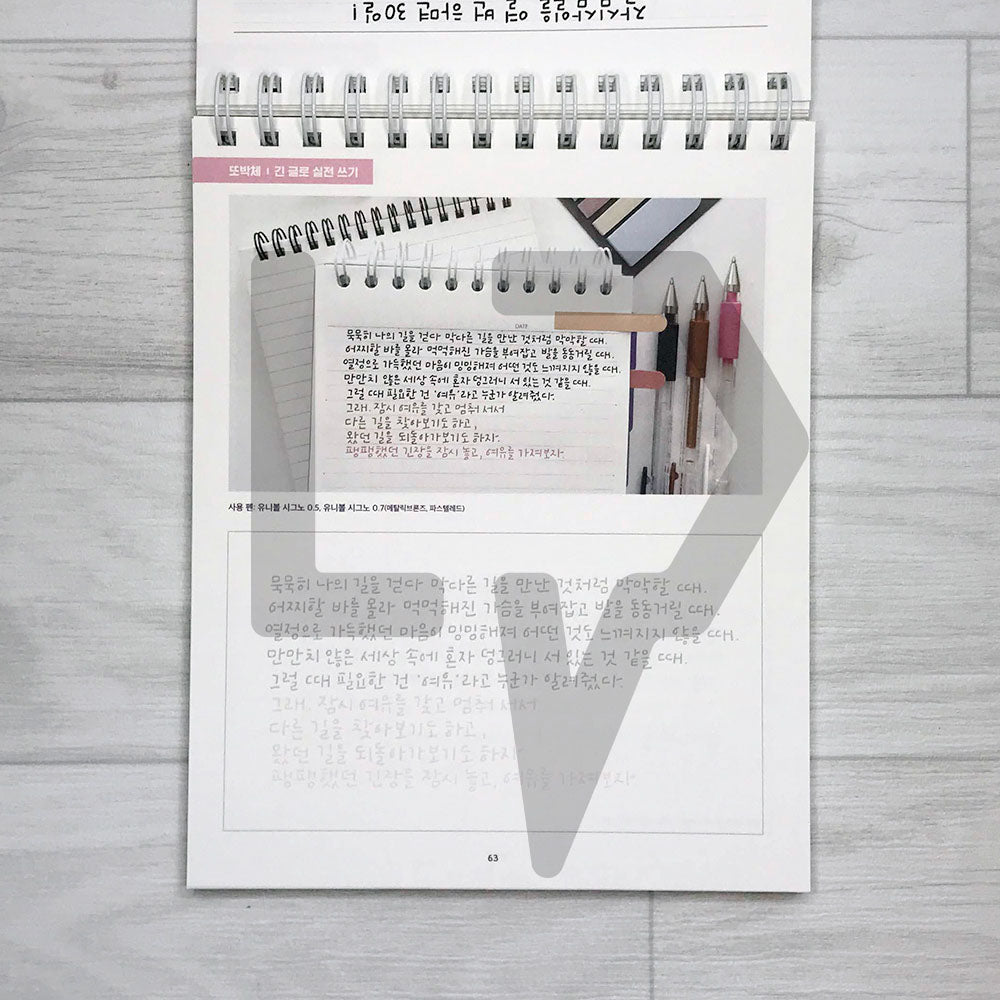 작심삼일을 열 번 하면 30일!
또박체 | 긴 글로 실전 쓰기
DATE
묵묵히 나의 길을 걷다 막다른 길을 만난 것처럼 막막할 때.
어찌할 바를 몰라 먹먹해진 가슴을 부여잡고 발을 동동거릴 때.
열정으로 가득했던 마음이 밍밍해져 어떤 것도 느껴지지 않을 때.
만만치 않은 세상 속에 혼자 덩그러니 서 있는 것 같을 때.
그럴 때 필요한 건 '여유'라고 누군가 알려줬다.
그래. 잠시 여유를 갖고 멈춰 서서
다른 길을 찾아보기도 하고,
왔던 길을 되돌아가보기도 하자.
팽팽했던 긴장을 잠시 놓고, 여유를 가져보자.
사용 펜: 유니볼 시그노 0.5, 유니볼 시그노 0.7(메탈릭브론즈, 파스텔레드)
묵묵히 나의 길을 걷다 막다른 길을 만난 것처럼 막막할 때.
어찌할 바를 몰라 먹먹해진 가슴을 부여잡고 발을 동동거릴 때.
열정으로 가득했던 마음이 밍밍해져 어떤 것도 느껴지지 않을 때.
만만치 않은 세상 속에 혼자 덩그러니 서 있는 것 같을 때.
그럴 때 필요한 건 '여유'라고 누군가 알려줬다.
그래. 잠시 여유를 갖고 멈춰 서서
다른 길을 찾아보기도 하고,
왔던 길을 되돌아가보기도 하자.
팽팽했던 긴장을 잠시 놓고, 여유를 가져보자.
63